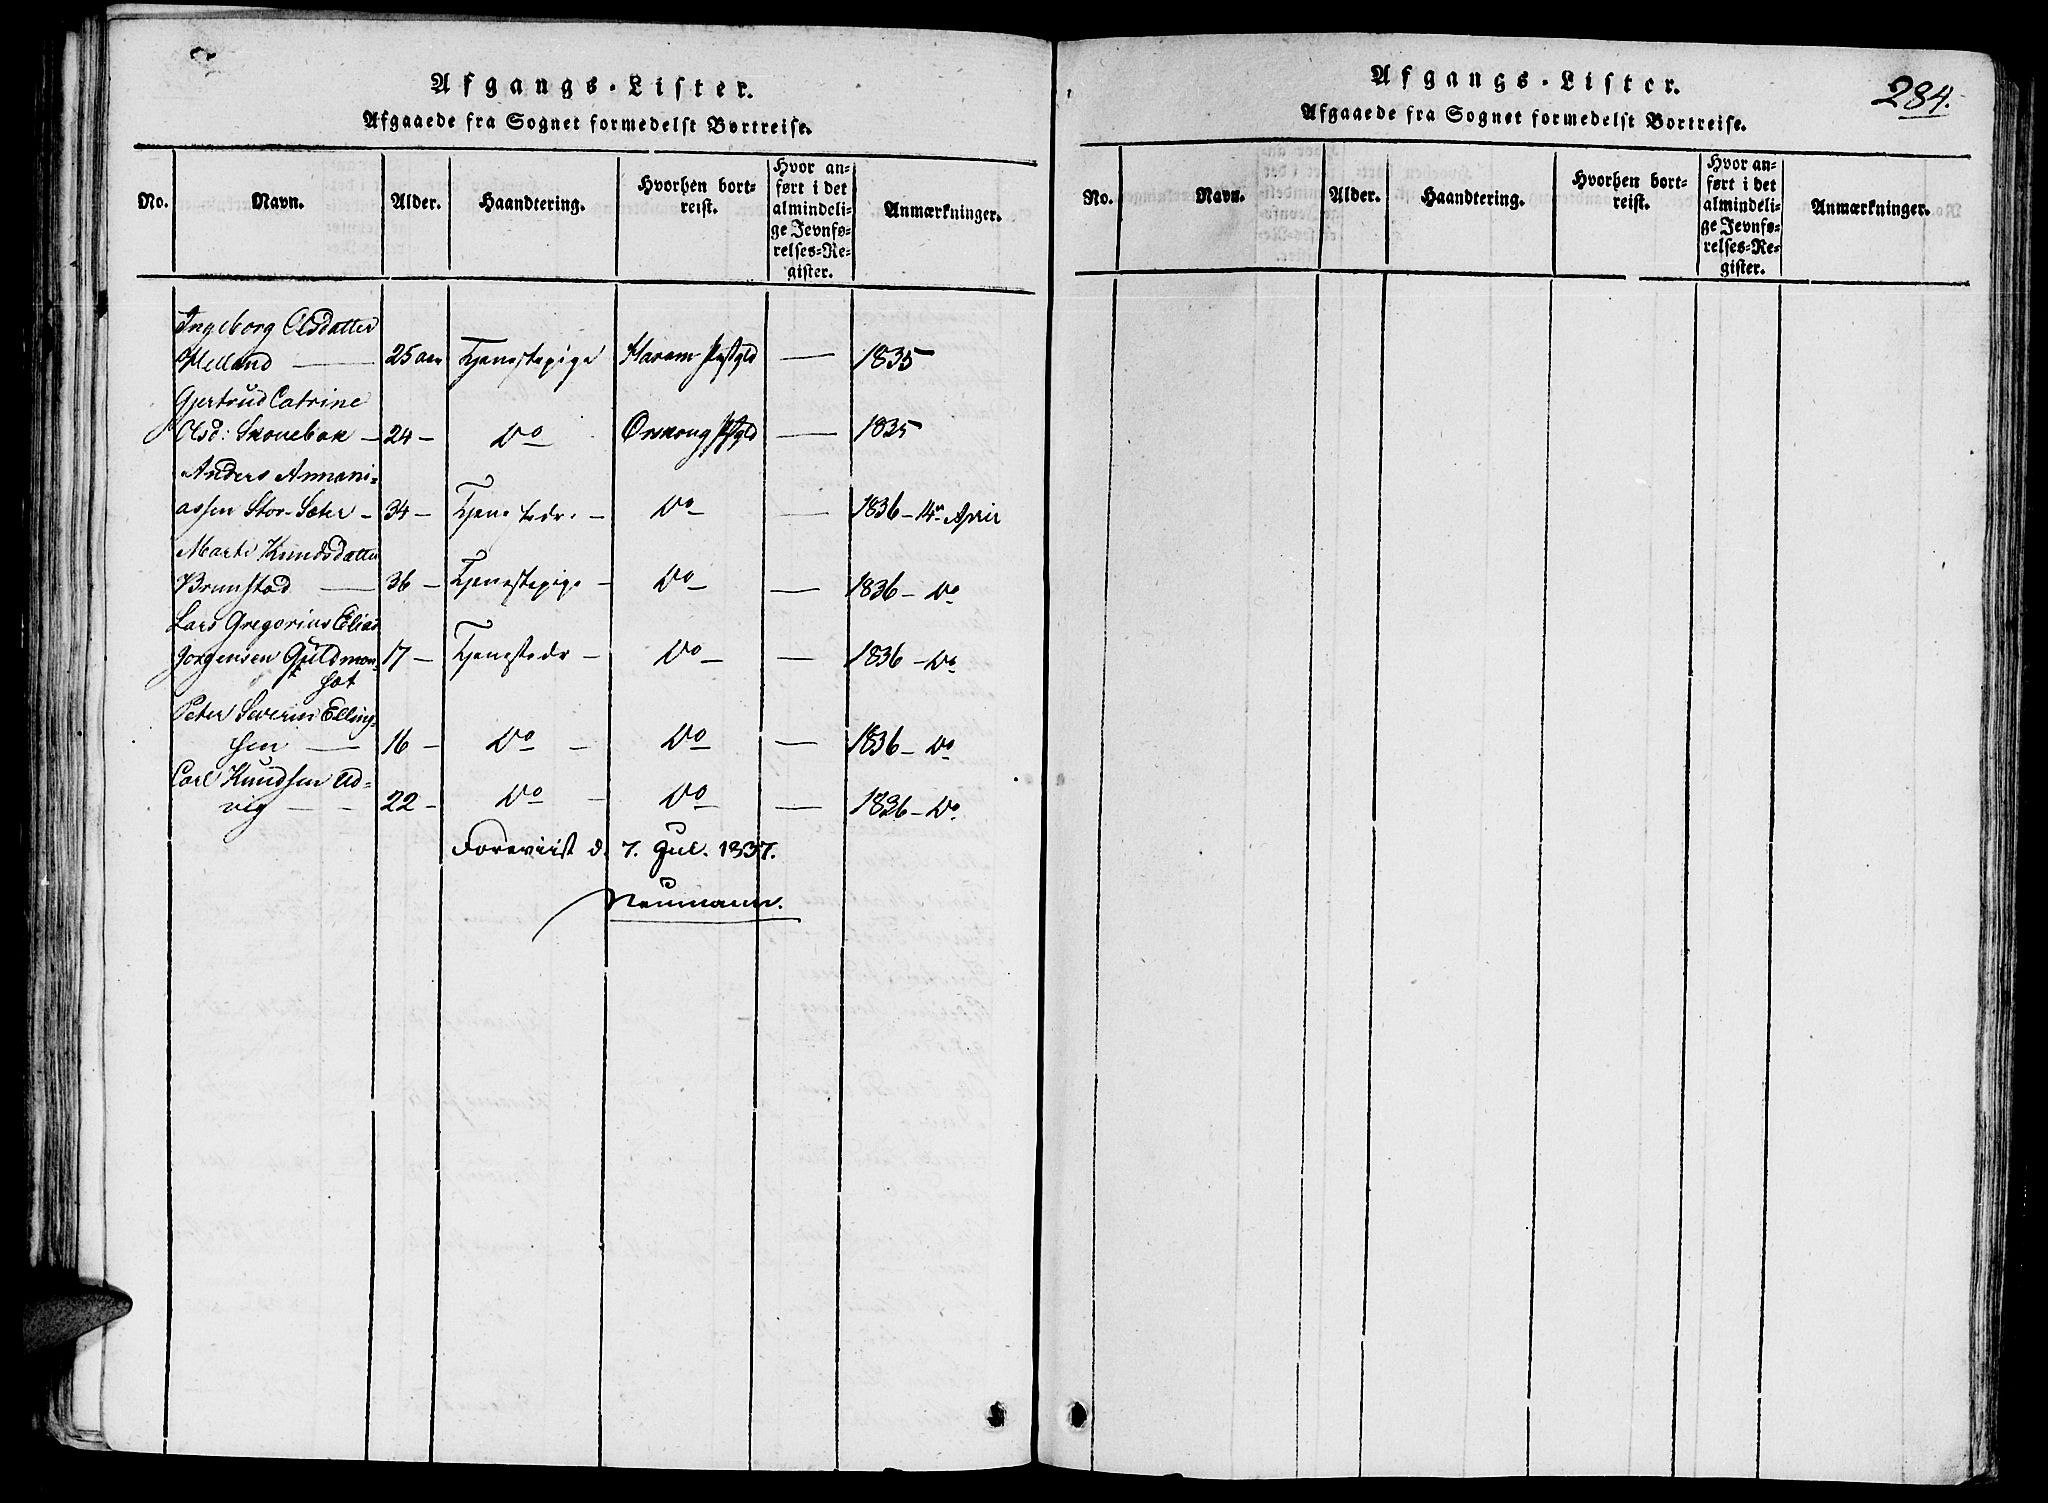 Afgangs-Lister.
Afgaaede fra Sognet formedelst Bortreise.
No.
Navn.
Alder.
Haandtering.
Hvorhen bort-
reist.
Hvor an-
ført i det
almindeli-
ge Jevnfø-
relses-Re-
gister.
Anmærkninger.
Ingeborg Olsdatter
Helland — 25 aar Tjenestepige Haram Præstgld — 1835
Gjertrud Catrine
Olsd: Skonebak — 24 — Do Ørskoug Pstgld — 1835
Anders Annani-
assen Stor-Sæter — 34 — Tjenestedr. — Do — 1836 — 14de April
Marte Knudsdatter
Brunstad — 36 — Tjenestepige — Do — 1836 — Do
Lars Gregorius Elias
Jørgensen Guldmon- 17 — Tjenestedr — Do — 1836 — Do
sæt
Peter Severin Elling-
sen — 16 — Do — Do — 1836 — Do
Carl Knudsen Ud-
vig — 22 — Do — Do — 1836 — Do
Foreviist d. 7. Jul. 1837.
Neumann.
Afgangs-Lister.
284.
Afgaaede fra Sognet formedelst Bortreise.
No.
Navn.
Alder.
Haandtering.
Hvorhen bort-
reist.
Hvor an-
ført i det
almindeli-
ge Jevnfø-
relses-Re-
gister.
Anmærkninger.